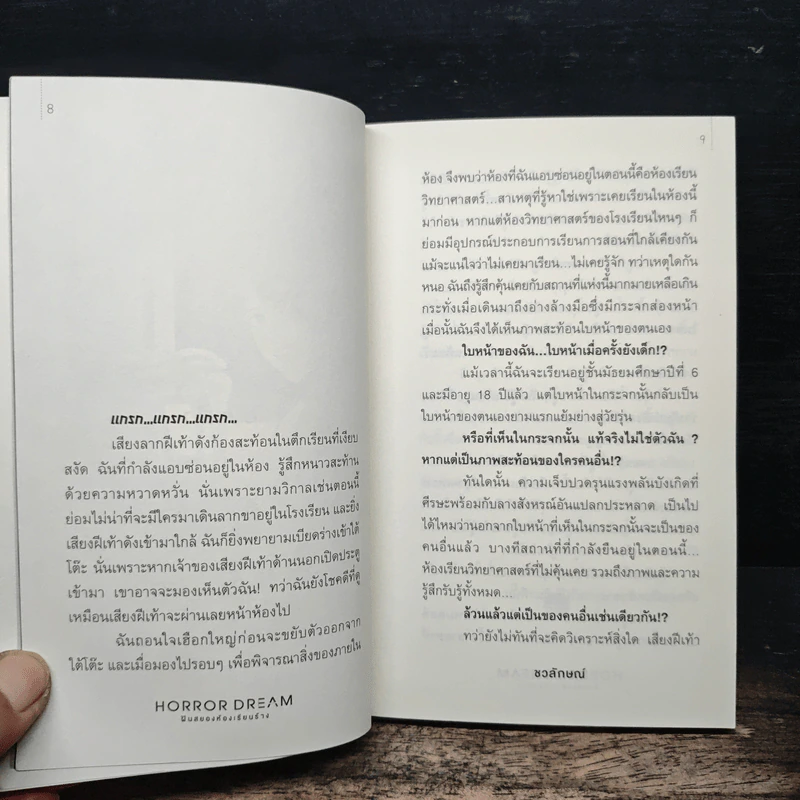 8
แกรก...แกรก...แกรก...
เสียงลากฝีเท้าดังก้องสะท้อนในตึกเรียนที่เงียบ
สงัด ฉันที่กำลังแอบซ่อนอยู่ในห้อง รู้สึกหนาวสะท้าน
ด้วยความหวาดหวั่น นั่นเพราะยามวิกาลเช่นตอนนี้
ย่อมไม่น่าที่จะมีใครมาเดินลากขาอยู่ในโรงเรียน และยิ่ง
เสียงฝีเท้าดังเข้ามาใกล้ ฉันก็ยิ่งพยายามเบียดร่างเข้าใต้
โต๊ะ นั่นเพราะหากเจ้าของเสียงฝีเท้าด้านนอกเปิดประตู
เข้ามา เขาอาจจะมองเห็นตัวฉัน! ทว่าฉันยังโชคดีที่ดู
เหมือนเสียงฝีเท้าจะผ่านเลยหน้าห้องไป
ฉันถอนใจเฮือกใหญ่ก่อนจะขยับตัวออกจาก
ใต้โต๊ะ และเมื่อมองไปรอบๆ เพื่อพิจารณาสิ่งของภายใน
HORROR DREAM
ฝันสยองห้องเรียนร้าง
9
ห้อง จึงพบว่าห้องที่ฉันแอบซ่อนอยู่ในตอนนี้คือห้องเรียน
วิทยาศาสตร์...สาเหตุที่รู้หาใช่เพราะเคยเรียนในห้องนี้
มาก่อน หากแต่ห้องวิทยาศาสตร์ของโรงเรียนไหนๆ ก็
ย่อมมีอุปกรณ์ประกอบการเรียนการสอนที่ใกล้เคียงกัน
แม้จะแน่ใจว่าไม่เคยมาเรียน...ไม่เคยรู้จัก ทว่าเหตุใดกัน
หนอ ฉันถึงรู้สึกคุ้นเคยกับสถานที่แห่งนี้มากมายเหลือเกิน
กระทั่งเมื่อเดินมาถึงอ่างล้างมือซึ่งมีกระจกส่องหน้า
เมื่อนั้นฉันจึงได้เห็นภาพสะท้อนใบหน้าของตนเอง
ใบหน้าของฉัน...ใบหน้าเมื่อครั้งยังเด็ก!?
แม้เวลานี้ฉันจะเรียนอยู่ชั้นมัธยมศึกษาปีที่ 6
และมีอายุ 18 ปีแล้ว แต่ใบหน้าในกระจกนั้นกลับเป็น
ใบหน้าของตนเองยามแรกแย้มย่างสู่วัยรุ่น
หรือที่เห็นในกระจกนั้น แท้จริงไม่ใช่ตัวฉัน ?
หากแต่เป็นภาพสะท้อนของใครคนอื่น!?
ทันใดนั้น ความเจ็บปวดรุนแรงพลันบังเกิดที่
ศีรษะพร้อมกับลางสังหรณ์อันแปลกประหลาด เป็นไป
ได้ไหมว่านอกจากใบหน้าที่เห็นในกระจกนั้นจะเป็นของ
คนอื่นแล้ว บางทีสถานที่ที่กำลังยืนอยู่ในตอนนี้...
ห้องเรียนวิทยาศาสตร์ที่ไม่คุ้นเคย รวมถึงภาพและความ
รู้สึกรับรู้ทั้งหมด...
ล้วนแล้วแต่เป็นของคนอื่นเช่นเดียวกัน!?
ทว่ายังไม่ทันที่จะคิดวิเคราะห์สิ่งใด เสียงฝีเท้า
ชวลักษณ์